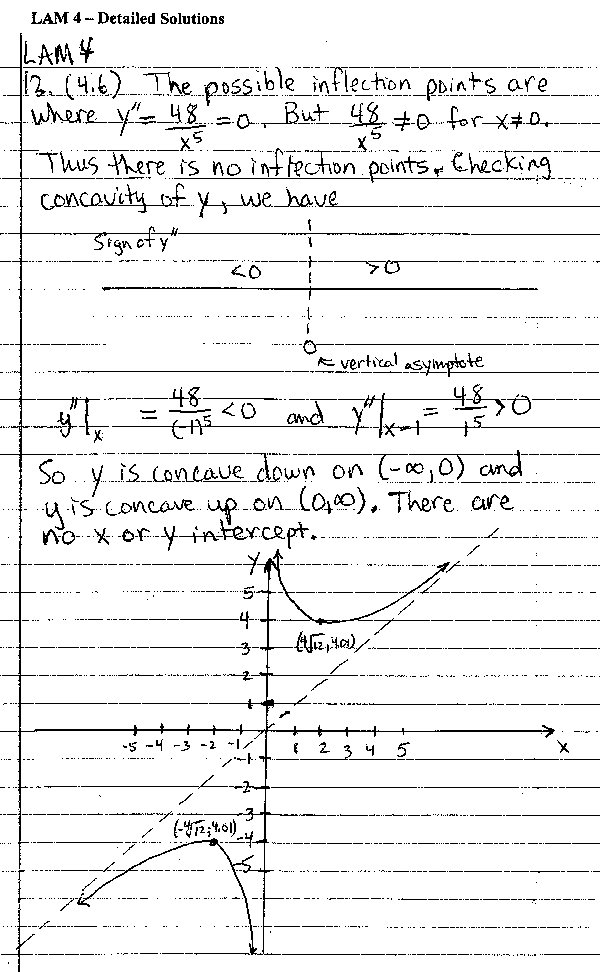 LAM 4 – Detailed Solutions
LAM 4
13. (4.6) The possible inflection points are
where y" = 48/x^5 = 0. But 48/x^5 ≠ 0 for x≠0.
Thus there is no inflection points. Checking
concavity of y, we have
Sign of y"
<0 >0
← vertical asymptote
y"|x = 48/(-1)^5 <0 and y"|x-1 = 48/1^5 >0
So y is concave down on (-∞,0) and
y is concave up on (0,∞). There are
no x or y intercept.
y
5
4
(∜12, 4.01)
3
2
1
-5 -4 -3 -2 -1 1 2 3 4 5 x
-1
-2
-3
(-∜12, 4.01) -4
-5